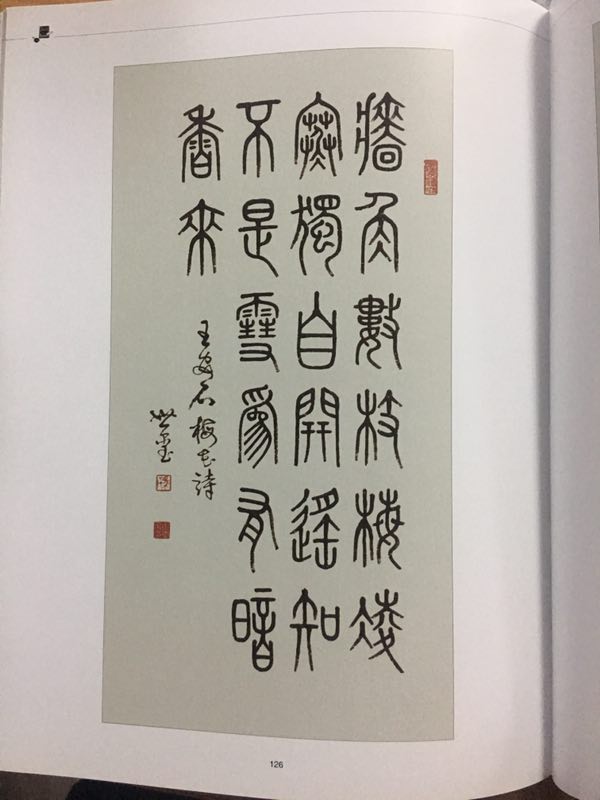 牆角數枝梅凌
寒獨自開遥知
不是雪爲有暗
香來
王安石梅花詩
世玺
126